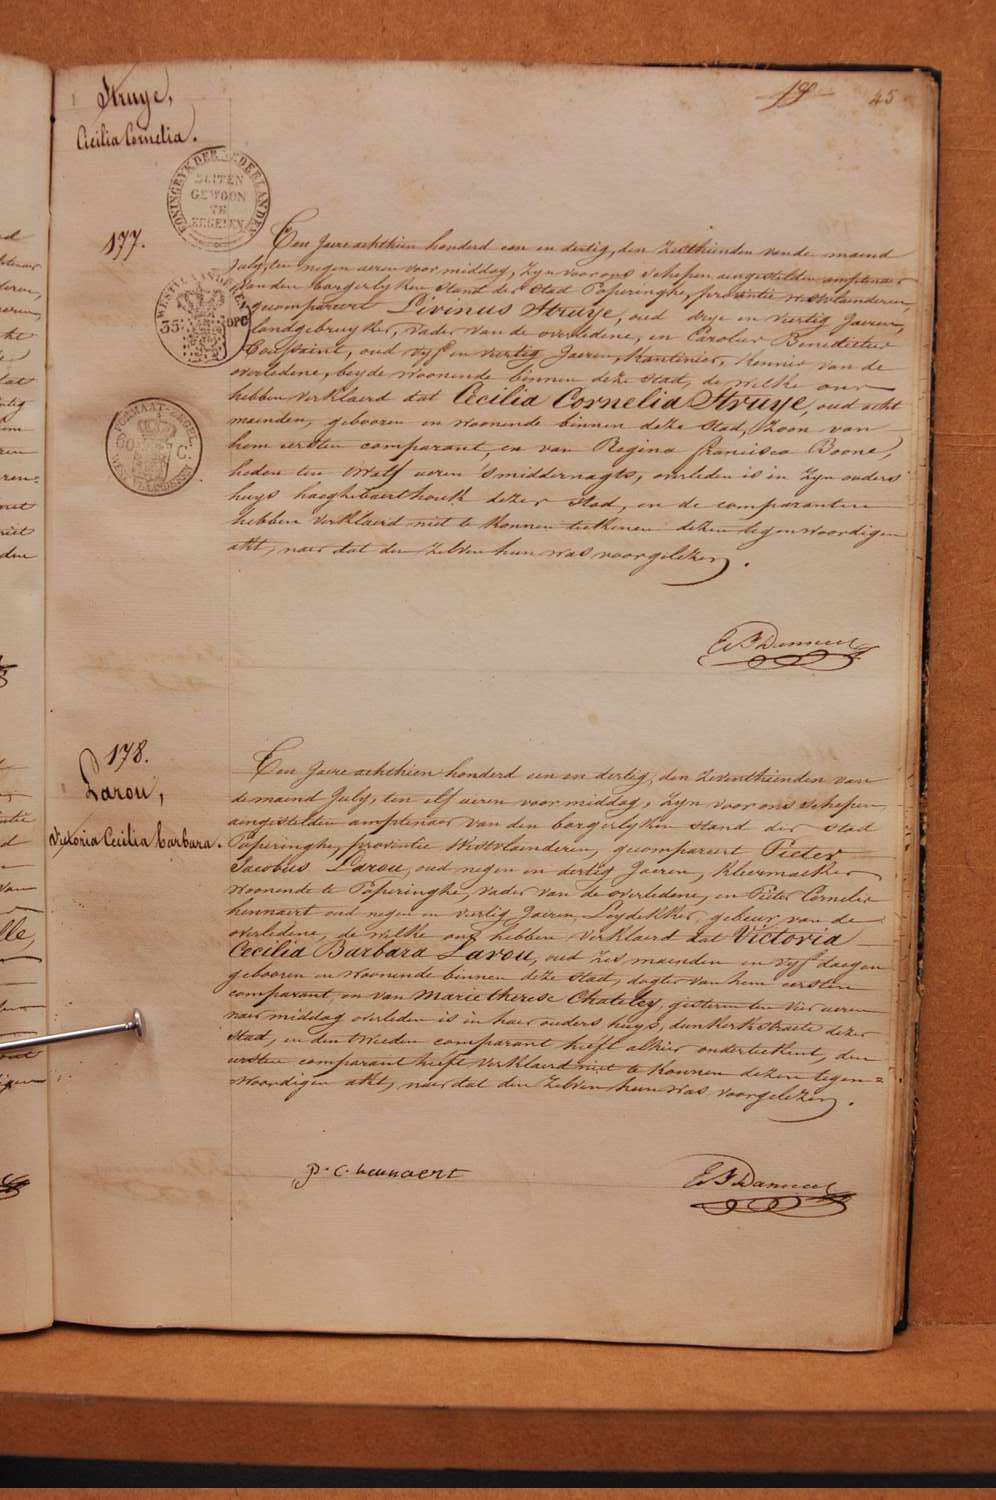 45
Struye,
Cecilia Cornelia.
KONINGRYK DER NEDERLANDEN
BUITEN
GEWOON
TE
ZEGELEN
177.
Een Jaere achthien honderd een en dertig, den Zesthienden van de maend
July, ten negen ueren voor middag, zyn voor ons schepen aengestelden amptenaer
van den borgerlyken stand der stad Poperinghe, provintie Westvlaenderen,
gecompareert Livinus Struye, oud drye en viertig Jaeren,
landgebruyker, vader van de overledene, en Carolus Benedictus
Toussaint, oud vyf en viertig Jaeren, kantinier, kennis van de
overledene, beyde woonende binnen deze stad, de welke ons
hebben verklaerd dat Cecilia Cornelia Struye, oud acht
maenden, gebooren en woonende binnen deze stad, zoon van
hem eersten comparant, en van Regina francisca Boone,
heden ten twelf ueren 'smiddernagts, overleden is in zyn ouders
huys haeghebaerthoek dezer stad, en de comparanten
hebben verklaerd niet te konnen teekenen dezen tegenwoordigen
akt, naer dat den zelven hun was voorgelezen.
WESTVLAANDEREN
35 OPC
FORMAAT-ZEGEL
C.
178.
Larou,
Victoria Cecilia barbara.
Een Jaere achthien honderd een en dertig, den zeventhienden van
de maend July, ten elf ueren voor middag, zyn voor ons schepen
aengestelden amptenaer van den borgerlyken stand der stad
Poperinghe, provintie Westvlaenderen, gecompareert Pieter
Jacobus Larou, oud negen en dertig Jaeren, kleermaeker
woonende te Poperinghe, vader van de overledene, en Pieter Cornelis
hennaert oud negen en viertig Jaeren, Leydekker, gebeur van de
overledene, de welke ons hebben verklaerd dat Victoria
Cecilia Barbara Larou, oud zes maenden en vyf daegen
gebooren en woonende binnen deze stad, dogter van hem eersten
comparant, en van Marie therese Chateley, gisteren ten vier ueren
naer middag overleden is in haer ouders huys, dunkerkstraete dezer
stad, en den tweeden comparant heeft alhier onderteekent, den
eersten comparant heeft verklaerd niet te konnen dezen tegen=
woordigen akt, naer dat den zelven hun was voorgelezen.
P. C. hennaert